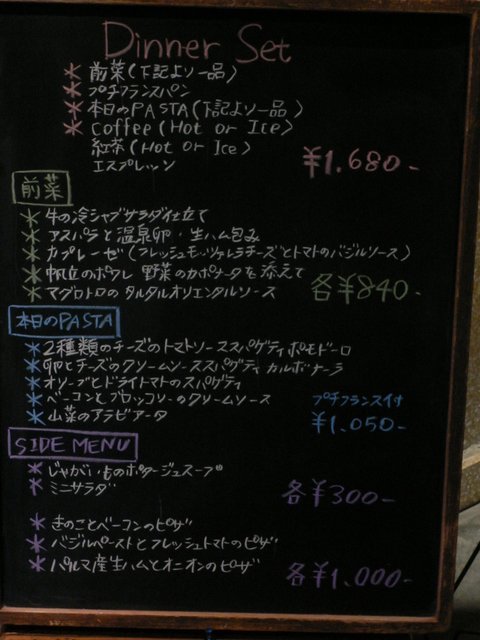 Dinner Set
* 前菜(下記より一品)
* プチフランスパン
* 本日のPASTA(下記より一品)
* Coffee(Hot or Ice)
紅茶(Hot or Ice)
エスプレッソ
¥1.680-
前菜
* 牛の冷シャブサラダ仕立て
* アスパラと温泉卵・生ハム包み
* カプレーゼ(フレッシュモッツァレラチーズとトマトのバジルソース)
* 帆立のポワレ 野菜のカポナータを添えて
* マグロトロのタルタルオリエンタルソース
各¥840-
本日のPASTA
* 2種類のチーズのトマトソーススパゲティポモドーロ
* 卵とチーズのクリームソーススパゲティカルボナーラ
* オリーブとドライトマトのスパゲティ
* ベーコンとブロッコリーのクリームソース
* 山菜のアラビアータ
プチフランス付
¥1.050-
SIDE MENU
* じゃがいものポタージュスープ
* ミニサラダ
各¥300-
* きのことベーコンのピザ
* バジルペーストとフレッシュトマトのピザ
* パルマ産生ハムとオニオンのピザ
各¥1.000-